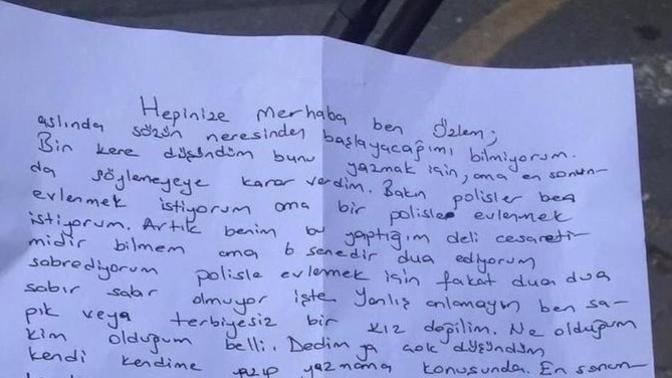 Hepinize Merhaba ben Özlem;
aslında sözün neresinden başlayacağımı bilmiyorum.
Bin kere düşündüm bunu yazmak için, ama en sonun-
da söylemeyeye karar verdim. Bakın polisler ben
evlenmek istiyorum ama bir polisle evlenmek
istiyorum. Artık benim bu yaptığım deli cesareti-
midir bilmem ama 6 senedir dua ediyorum
sabrediyorum polisle evlemek için fakat dua dua
sabır sabır olmuyor işte Yanlış anlamayın ben sa-
pık veya terbiyesiz bir kız değilim. Ne olduğum
kim olduğum belli. Dedim ya çok düşündüm
kendi kendime yazıp yazmama konusunda. En sonun-